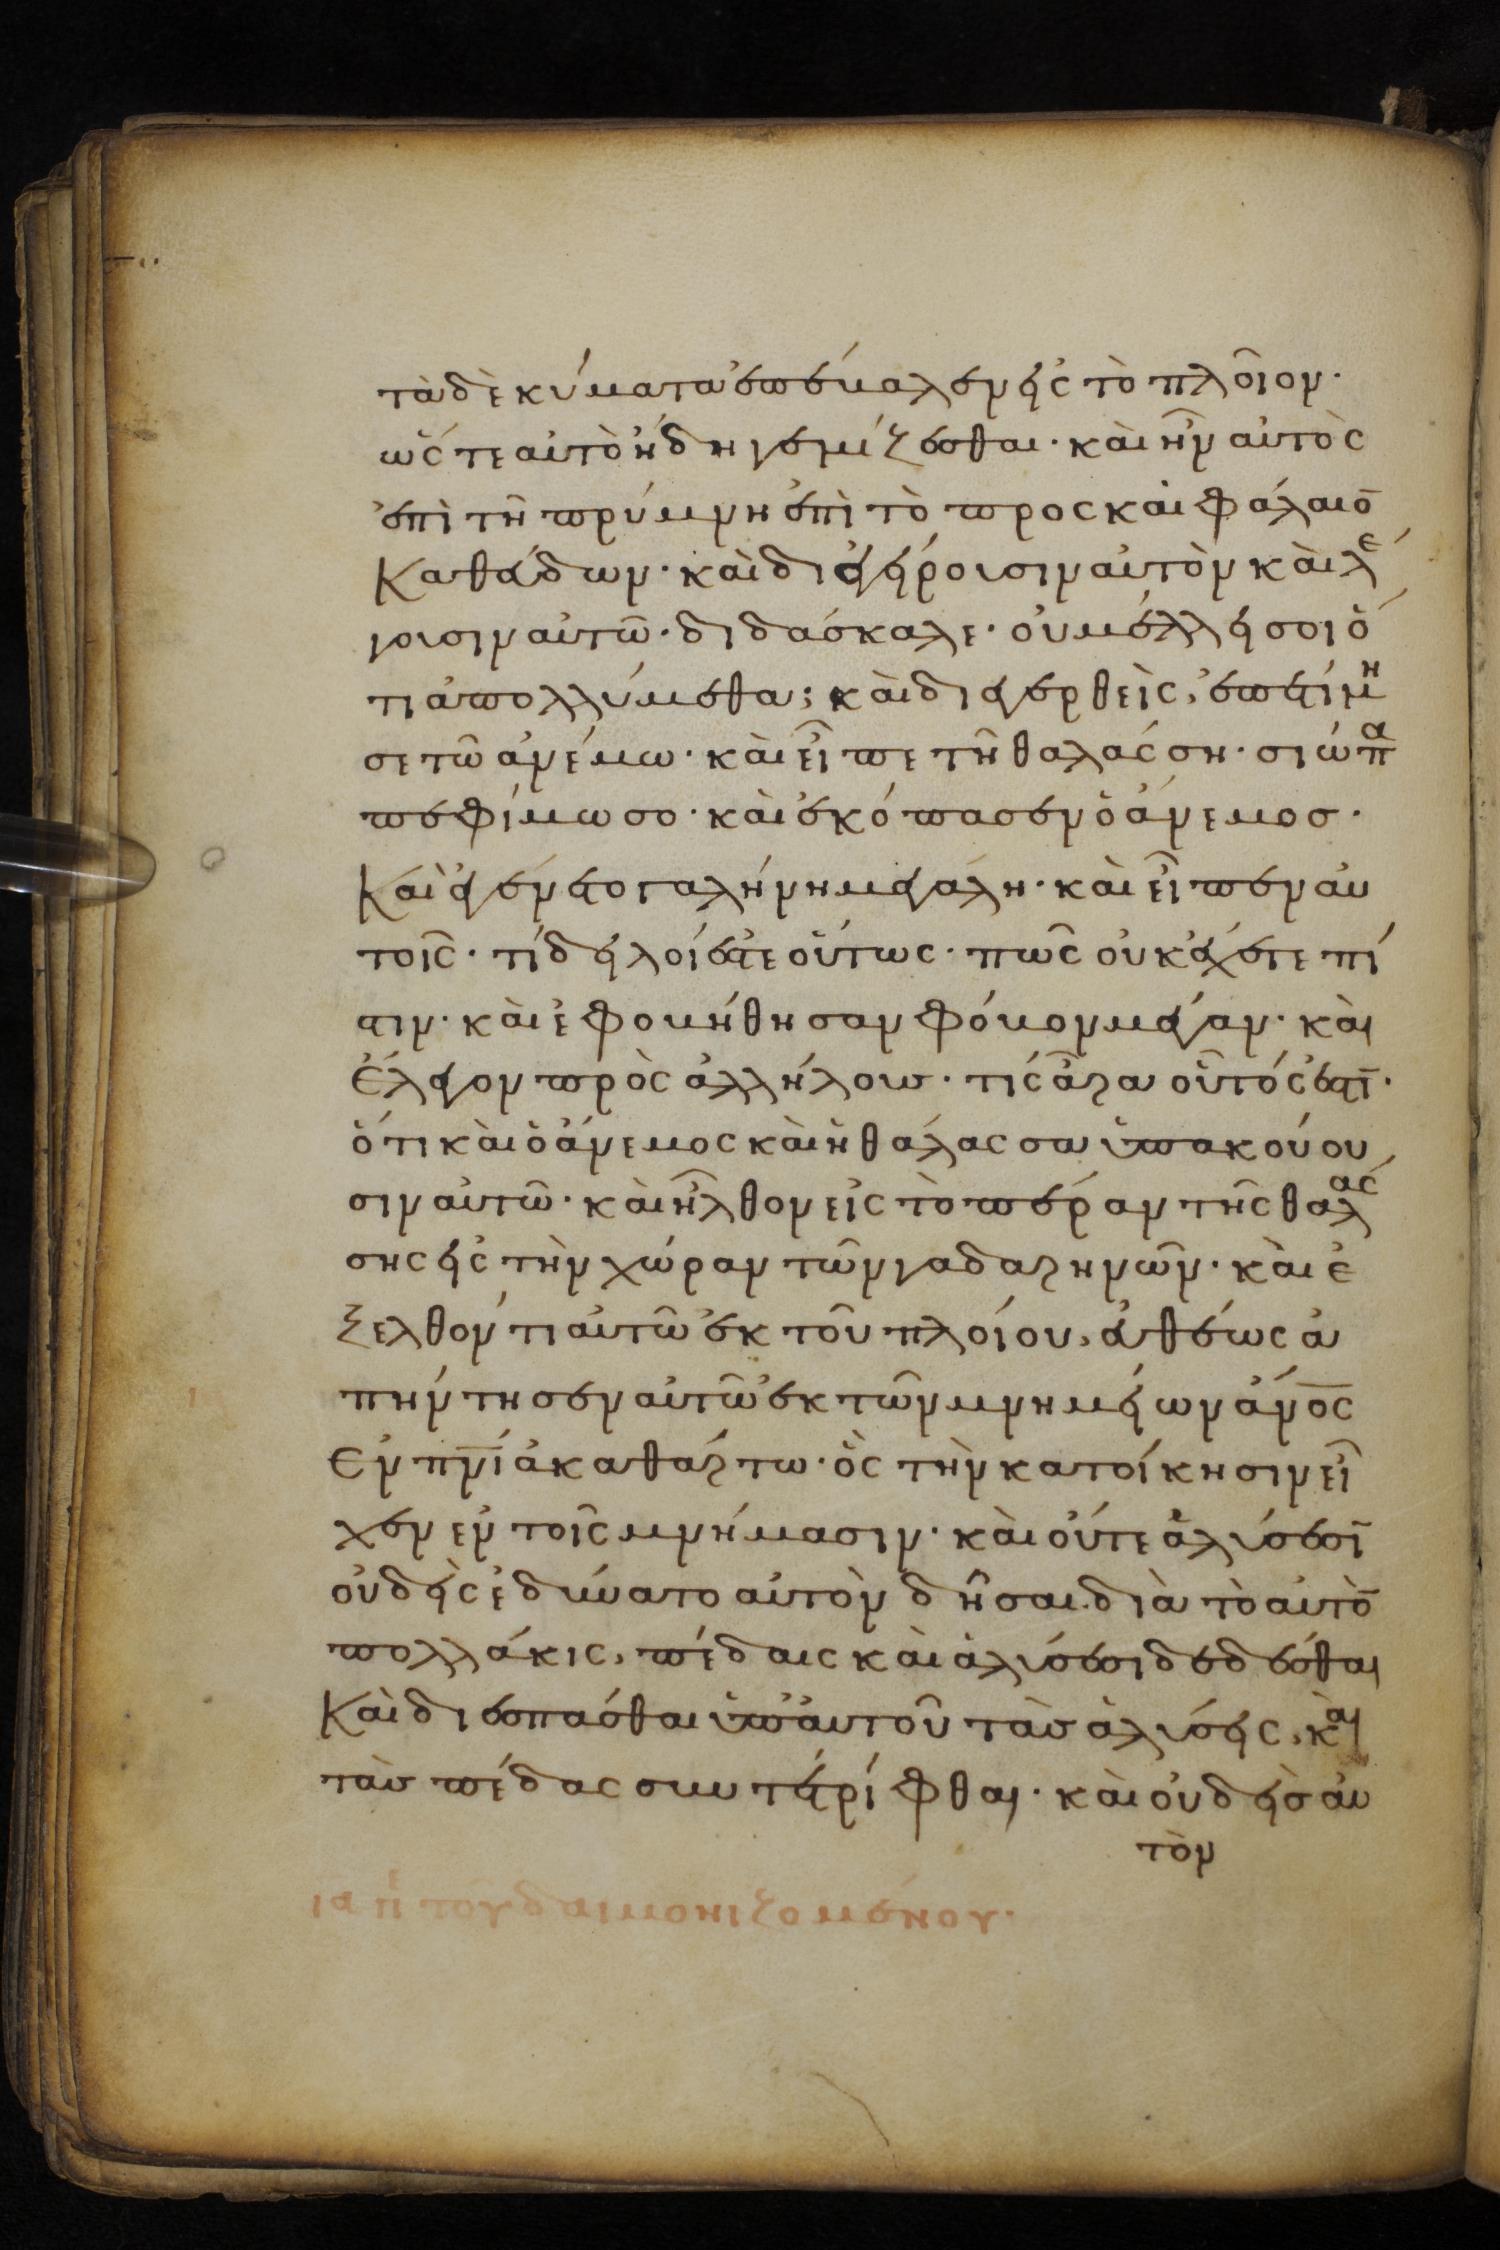 τὰ δὲ κύματα ἐπέβαλεν εἰς τὸ πλοῖον·
ὥστε αὐτὸ ἤδη γεμίζεσθαι· καὶ ἦν αὐτὸς
ἐπὶ τῆ πρύμνη ἐπὶ τὸ προσκαιφάλαιο̄
Καθεύδων· καὶ διεγείρουσιν αὐτὸν καὶ λέ
γουσιν αὐτῶ· διδάσκαλε· οὐ μέλλει σοι ὅ
τι ἀπολλύμεθα; καὶ διεγερθεὶς, ἐπετίμη
σε τῶ ἀνέμω· καὶ εἶπε τῆ θαλάσση· σιώπα
πεφίμωσο· καὶ ἐκόπασεν ὁ ἄνεμοσ·
Καὶ ἐγένετο γαλήνη μεγάλη· καὶ εἶπεν αὐ
τοῖς· τί δειλοί ἐστε οὕτως· πῶς οὐκ ἔχετε πί
στιν· καὶ ἐφοβήθησαν φόβον μέγαν· καὶ
ἔλεγον πρὸς ἀλλήλουσ· τίς ἆρα οὗτός ἐστῑ·
ὅτι καὶ ὁ ἄνεμος καὶ ἡ θάλασσα ὑπακούου
σιν αὐτῶ· καὶ ἦλθον εἰς τὸ πέραν τῆς θαλάσ
σης εἰς τὴν χώραν τῶν γαδαρηνῶν· καὶ ἐ
ξελθόντι αὐτῶ ἐκ τοῦ πλοίου, εὐθέως ἀ
πήντησεν αὐτῶ ἐκ τῶν μνημείων ἄν̅ο̅ς̅
Ἐν π̅ν̅ι̅ ἀκαθάρτω· ὃς τὴν κατοίκησιν εἶ
χεν ἐν τοῖς μνήμασιν· καὶ οὔτε ἁλύσεσῑ
οὐδεὶς ἐδύνατο αὐτὸν δῆσαι. διὰ τὸ αὐτὸ̄
πολλάκις, πέδαις καὶ ἁλύσεσι δεδέσθαι
Καὶ διεσπάσθαι ὑπ' αὐτοῦ τὰσ ἁλύσεις, καὶ
τὰσ πέδας συντετρίφθαι· καὶ οὐδεὶσ αὐ
τὸν
ια π̅ τοῦ δαιμονιζομένου·